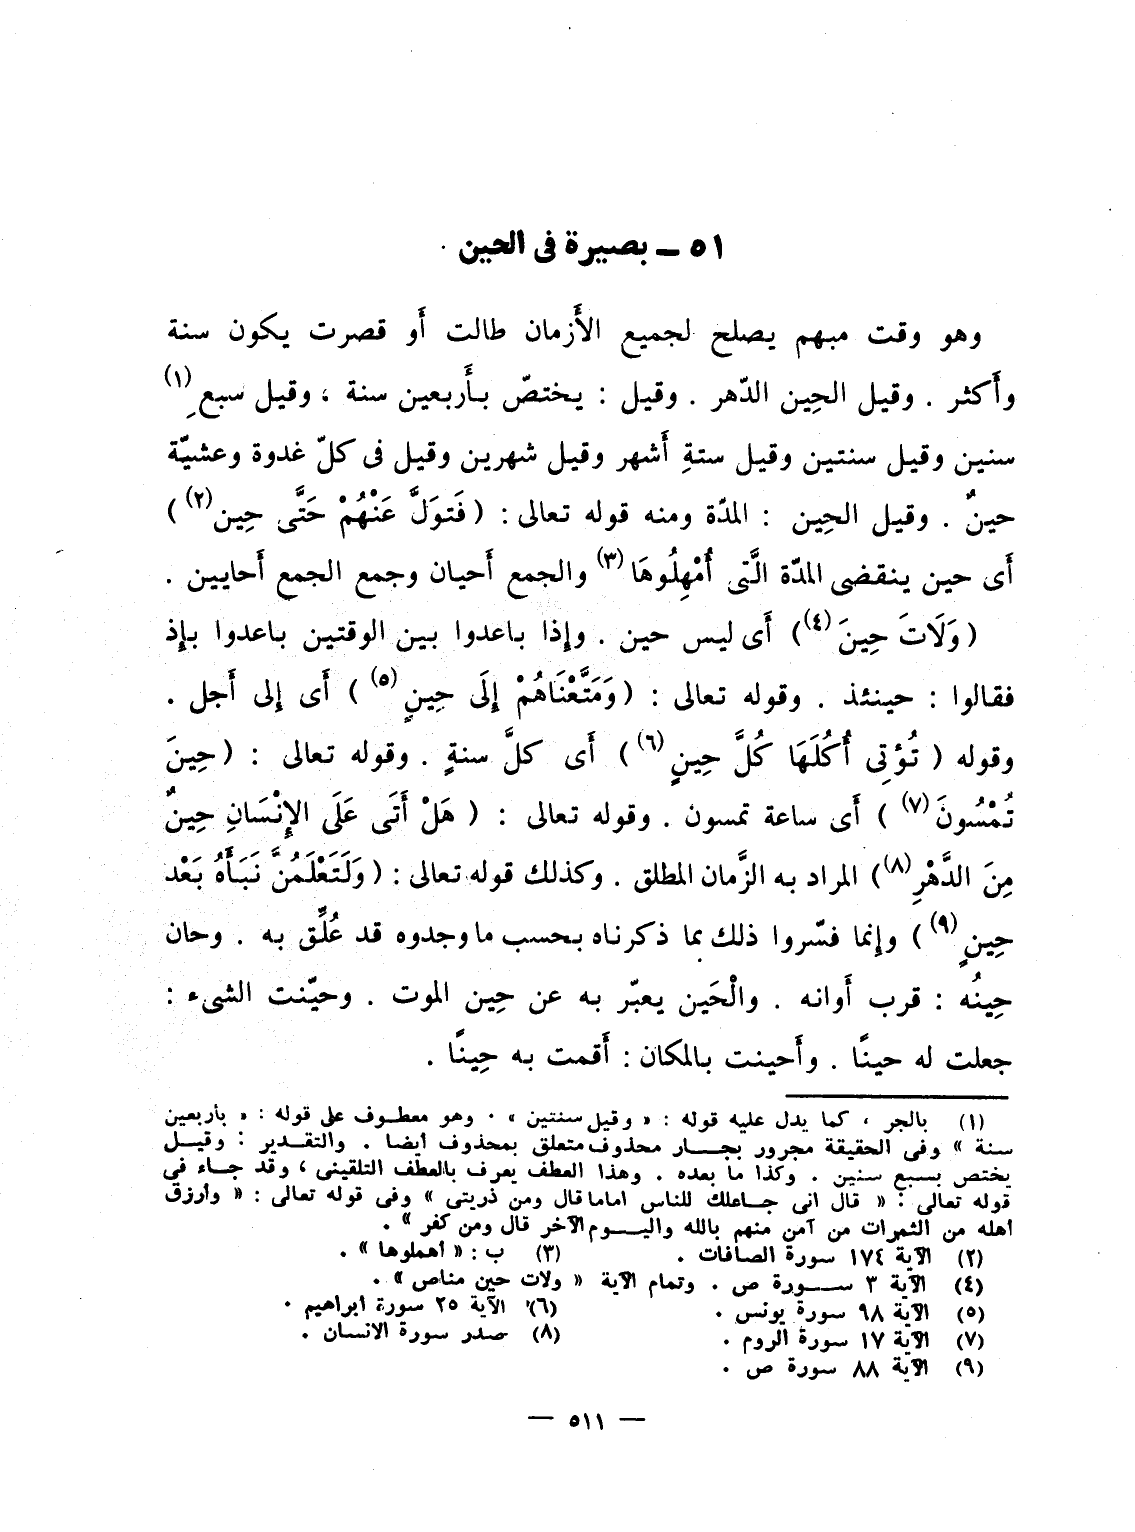 ٥١ ـ بصيرة فى الحين
وهو وقت مبهم يصلح لجميع الأَزمان طالت أَو قصرت يكون سنة
وأَكثر . وقيل الحِين الدّهر . وقيل : يختصّ بأَربعين سنة ، وقيل سبعِ(١)
سنين وقيل سنتين وقيل ستةِ أَشهر وقيل شهرين وقيل فى كلّ غدوة وعشيّة
حينٌ . وقيل الحِين : المدّة ومنه قوله تعالى : ( فَتَولَّ عَنْهُمْ حَتَّى حِين(٢) )
أَى حين ينقضى المدّة الَّتى أُمْهِلُوهَا(٣) والجمع أَحيان وجمع الجمع أَحايين .
( وَلَاتَ حِينَ(٤) ) أَى ليس حين . وإِذا باعدوا بين الوقتين باعدوا بإِذ
فقالوا : حينئذ . وقوله تعالى : ( وَمَتَّعْنَاهُمْ إِلَى حِينٍ(٥) ) أَى إِلى أَجل .
وقوله ( تُؤتِى أُكُلَهَا كُلَّ حِينٍ(٦) ) أَى كلَّ سنةٍ . وقوله تعالى : ( حِينَ
تُمْسُونَ(٧) ) أَى ساعة تمسون . وقوله تعالى : ( هَلْ أَتَى عَلَى الإِنْسَانِ حِينٌ
مِنَ الدَّهْرِ(٨) ) المراد به الزَّمان المطلق . وكذلك قوله تعالى : ( وَلَتَعْلَمُنَّ نَبَأَهُ بَعْد
حِينٍ(٩) ) وإِنما فسّروا ذلك بما ذكرناه بحسب ما وجدوه قد عُلِّق به . وحان
حِينُه : قرب أَوانه . والْحَين يعبّر به عن حِين الموت . وحيّنت الشىء :
جعلت له حينًا . وأَحينت بالمكان : أَقمت به حِينًا .
(١) بالجر ، كما يدل عليه قوله : « وقيل سنتين » . وهو معطوف على قوله : « بأربعين
سنة » وفى الحقيقة مجرور بجـار محذوف متعلق بمحذوف أيضا . والتقدير : وقيـل
يختص بسبع سنين . وكذا ما بعده . وهذا العطف يعرف بالعطف التلقينى ، وقد جاء فى
قوله تعالى : « قال انى جاعلك للناس اماما قال ومن ذريتى » وفى قوله تعالى : « وأرزق
أهله من الثمرات من آمن منهم بالله واليـوم الآخر قال ومن كفر » .
(٢) الآية ١٧٤ سورة الصافات . (٣) ب : « أهملوها » .
(٤) الآية ٣ سـورة ص . وتمام الآية « ولات حين مناص » .
(٥) الآية ٩٨ سورة يونس . (٦) الآية ٢٥ سورة ابراهيم .
(٧) الآية ١٧ سورة الروم . (٨) صدر سورة الانسان .
(٩) الآية ٨٨ سورة ص .
— ٥١١ —